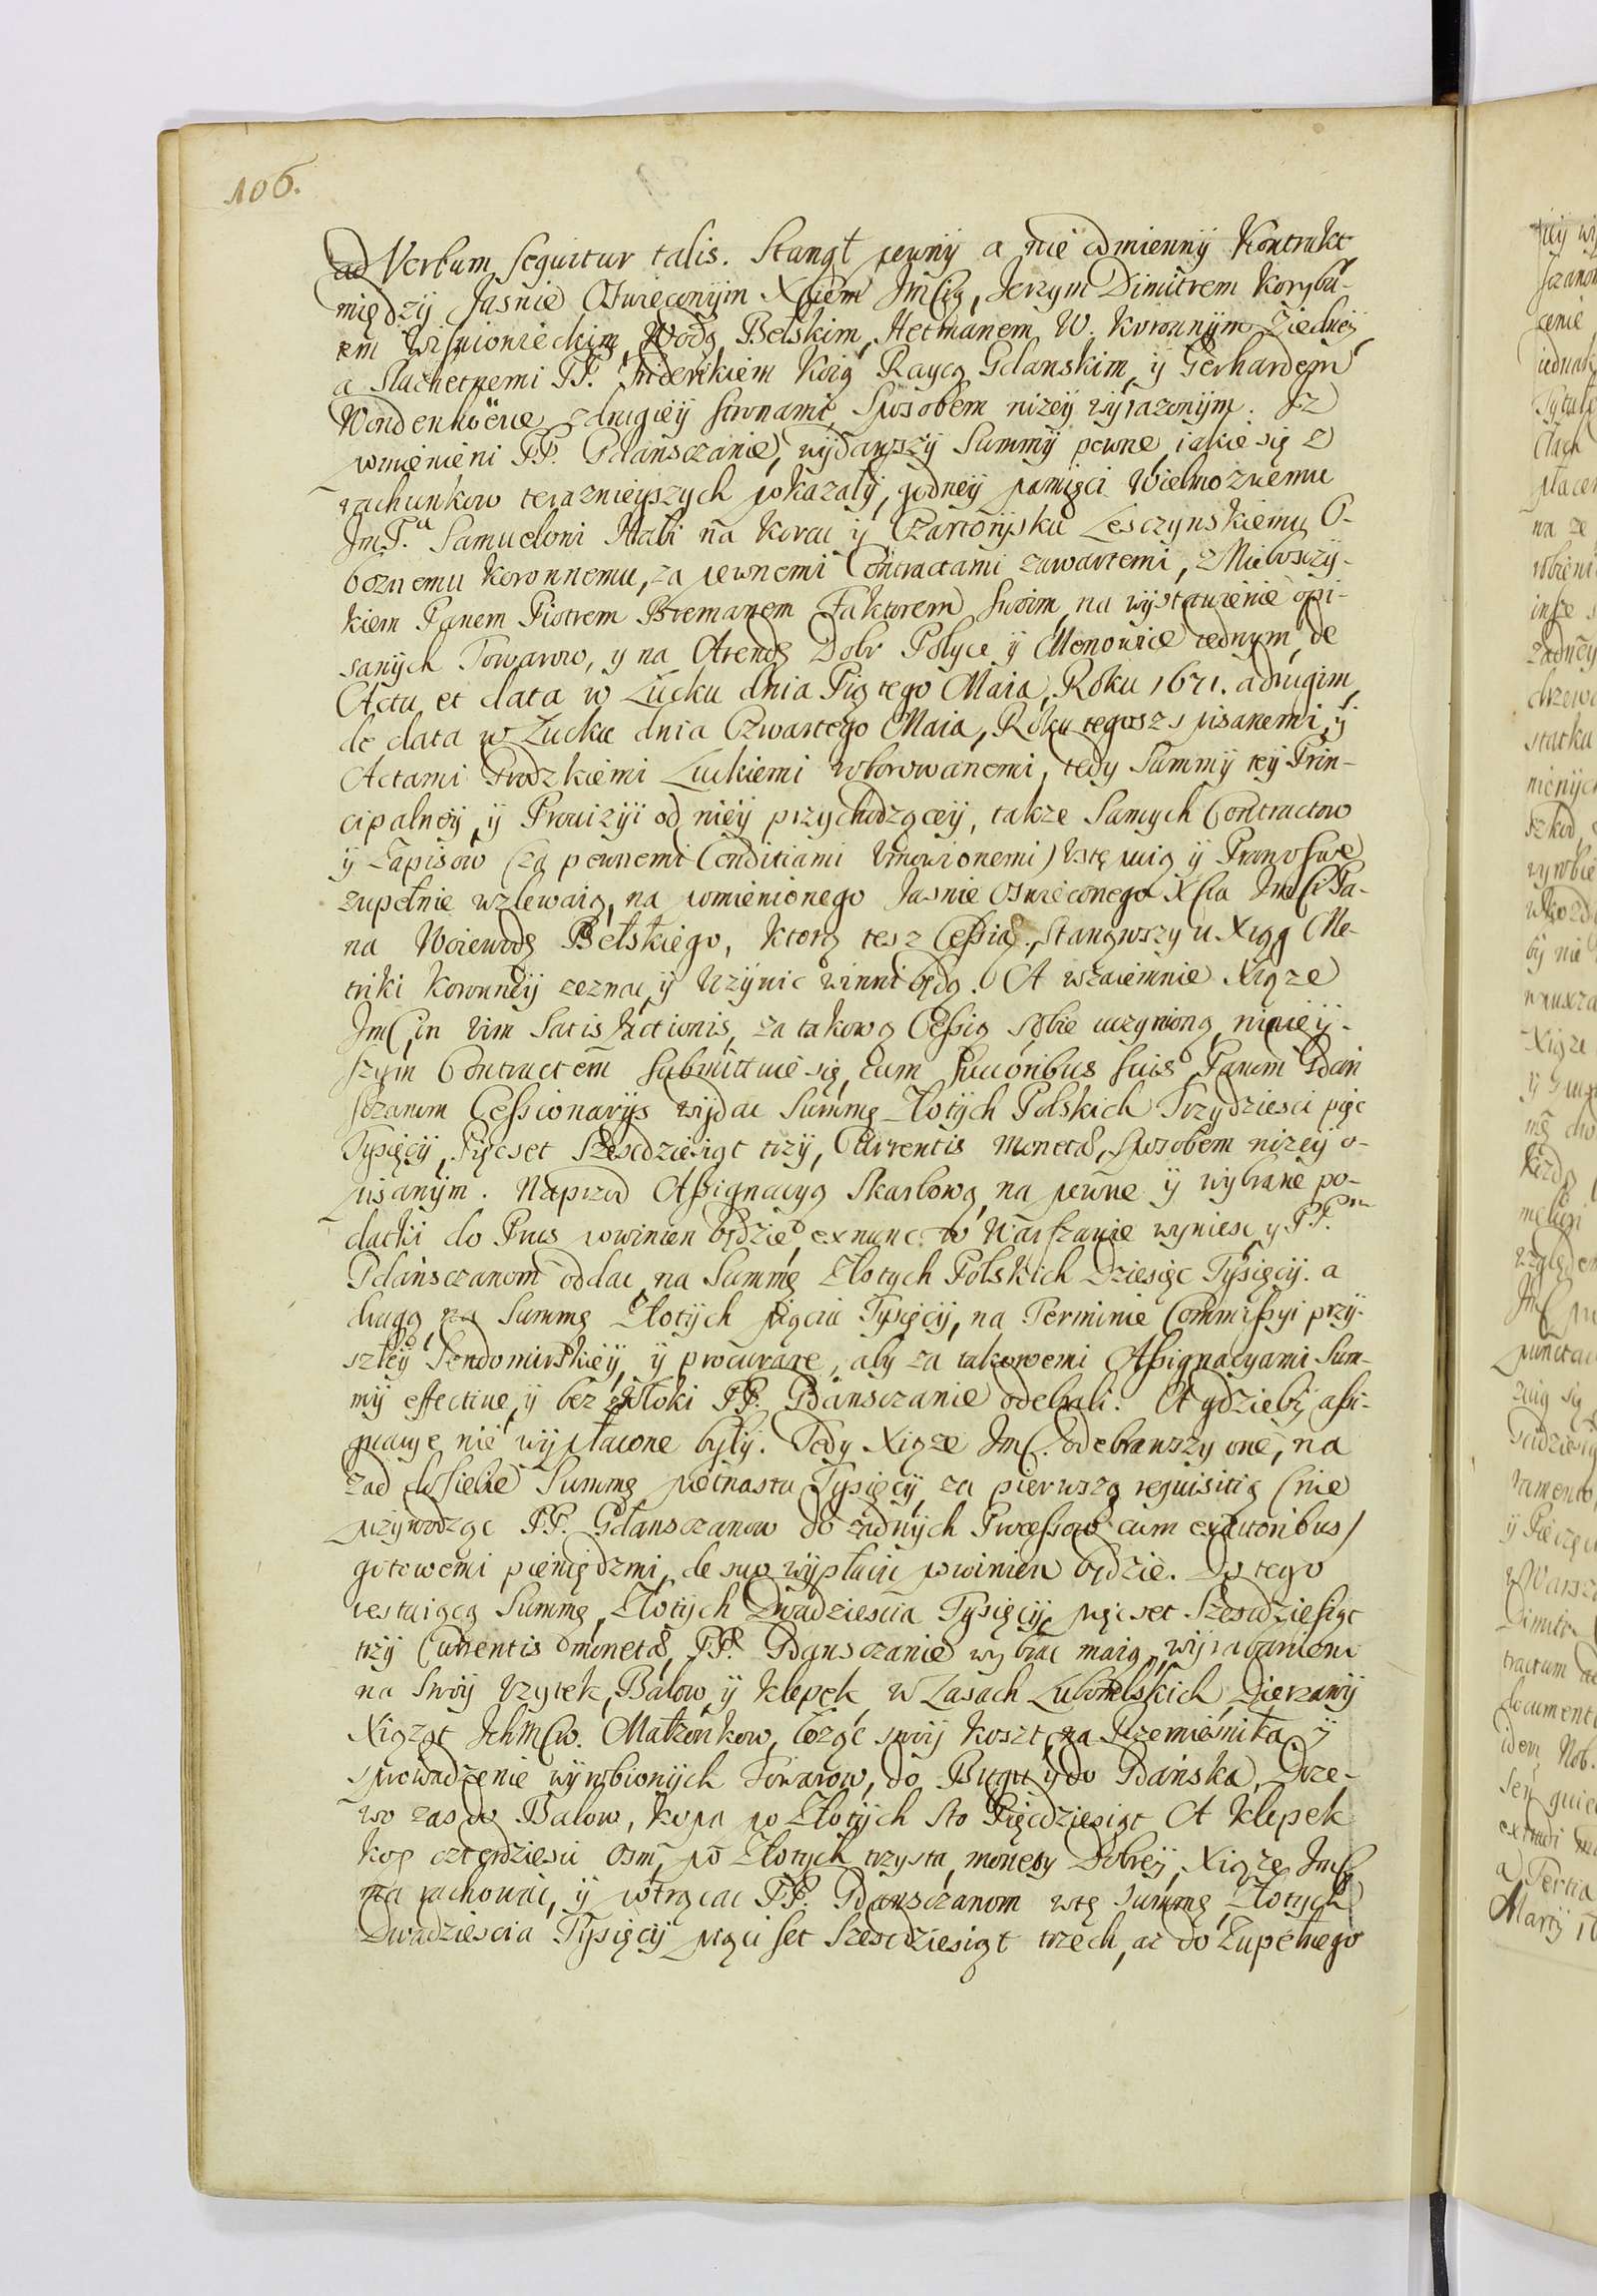 106.
ad Verbum seqvitur talis. Stanął pewny a nie odmienny Kontrakt
między Jasnie Oswieconym Xciem JmCią, Jerzym Dimitrem Korybu-
em Wisnioniēckim, Wodą Bełskim, Hetmanem W. Koronnym ziedney
a Slachetnemi PP. Friderikiem Raycą Gdanskim, y Gerhardem
zdrugiey stronami, sposobem nizey wyrazonym. Iz
pomienieni PP. Gdansczanie, wydawszy Summy pewne, iakie się z
rachunkow teraznieyszych pokazały, godney pamięci Wielmoznemu
Jm.P.u Samuelowi Hrabi na Korcu y Czartorysku Lesczynskiemu O-
boznemu Koronnemu, za pewnemi Contractami zawartemi, z Nieboszczy-
kiem Panem Piotrem Bremanem Faktorem swoim, na wystawienie opi-
sanych Towarow, y na Arendę Dobr Polyce y Monowice iednym, de
Actu et data w Łucku dnia Piątego Maia, Roku 1671. a drugim
de data w Łucku dnia Czwartego Maia, Roku tegosz spisanemi, y
Actami Grodzkiemi Łuckiemi roborowanemi, tedy Summy tey Prin-
cipalney, y Prowizyi od niey przychodzącey, takze Samych Contractow
y Zapisow (za pewnemi Conditiami umowionemi) ustępuią y Prawo swe
zupełnie wzlewaią, na pomienionego Jasnie Oswieconego Xcia JmCi Pa-
na Woiewodę Bełskiego, ktorą tesz Cessią, stanąwszy u Xiąg Me-
triki Koronney zeznac, y uzynic winni będą. A wzaiemnie Xiąze
JmC, in vim Satisfactionis, za takową Cessią sobie uczynioną, ninieÿ-
szym Contractem submittuie się, cum Succoribus suis Panom Gdan
sczanom Cessionarÿs wydac Summę Złotych Polskich Trzydziesci pięc
Tysięcy, Pięcset szescdziesiąt trzy, Currentis monetæ, sposobem nizey o-
pisanym. Naprzod Assignacyą Skarbową, na pewne y wybrane po-
datki do Prus powinien będzie, ex nunc w Warszawie wyniesc, y PP.
Gdansczanom oddac, na Summę Złotych Polskich Dziesięc Tysięcy. a
drugą na Summę Złotych pięciu Tysięcy, na Terminie Commissyi przy-
szłey Sendomirskiey, y procurare, aby za takowemi Assignacyami Sum-
my effective, y bez zwłoki PP. Gdansczanie odebrali. A gdzieby assi-
gnacye nie wypłacone były. Tedy Xiąze JmC. odebrawszy one, na
zad do siebie Summę piętnastu Tysięcy, za pierwszą requisitią (nie
przywodząc PP. Gdansczanow do zadnych Processow cum exactoribus)
gotowemi pieniędzmi, de suo wypłacic powinien będzie. Do tego
restaiącą Summę, Złotych Dwadziescia Tysięcy pięcset Szescdziesiąt
trzy Currentis monetæ, PP. Gdansczanie wybrac maią, wyrabaniem
na swoy uzytek, Balow, y klepek w Lasach Lubomlskich Dierzawy
Xiąząt IchMCiw. Małzonkow, łoząc swoy koszt, na Rzemiesnika, y
sprowadzenie wyrobionych Towarow, do Bugu y do Gdanska, Drze-
wo zas do Balow, kopa po Złotych sto Pięcdziesiąt A klepek
kop czterdziesci Osm, po Złotych trzysta, monety Dobrey, Xiąze JmC
ma rachowac, y potrącac PP. Gdansczanom w tę Summę, Złotych
Dwadziescia Tysięcy pięci set Szescdziesiąt trzech, az do Zupełnego